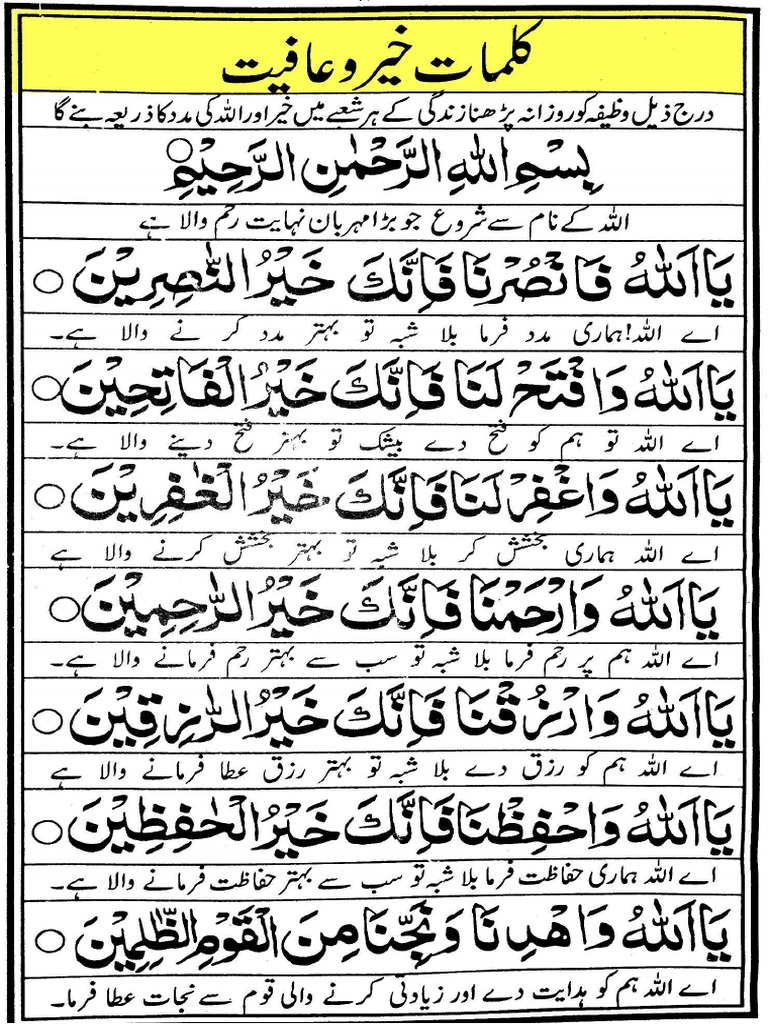 کلمات خیر و عافیت
درج ذیل وظیفہ کو روزانہ پڑھنا زندگی کے ہر شعبے میں خیر اور اللہ کی مدد کا ذریعہ بنے گا
بِسْمِ اللهِ الرَّحْمٰنِ الرَّحِيْمِ ○
اللہ کے نام سے شروع جو بڑا مہربان نہایت رحم والا ہے
يَا اَللّٰهُ فَانْصُرْنَا فَاِنَّكَ خَيْرُ النّٰصِرِيْنَ ○
اے اللہ! ہماری مدد فرما بلا شبہ تو بہتر مدد کرنے والا ہے۔
يَا اَللّٰهُ وَافْتَحْ لَنَا فَاِنَّكَ خَيْرُ الْفَاتِحِيْنَ ○
اے اللہ تو ہم کو فتح دے بیشک تو بہتر فتح دینے والا ہے۔
يَا اَللّٰهُ وَاغْفِرْ لَنَا فَاِنَّكَ خَيْرُ الْغٰفِرِيْنَ ○
اے اللہ ہماری بخشش کر بلا شبہ تو بہتر بخشش کرنے والا ہے
يَا اَللّٰهُ وَارْحَمْنَا فَاِنَّكَ خَيْرُ الرّٰحِمِيْنَ ○
اے اللہ ہم پر رحم فرما بلا شبہ تو سب سے بہتر رحم فرمانے والا ہے۔
يَا اَللّٰهُ وَارْزُقْنَا فَاِنَّكَ خَيْرُ الرّٰزِقِيْنَ ○
اے اللہ ہم کو رزق دے بلا شبہ تو بہتر رزق عطا فرمانے والا ہے
يَا اَللّٰهُ وَاحْفِظْنَا فَاِنَّكَ خَيْرُ الْحٰفِظِيْنَ ○
اے اللہ ہماری حفاظت فرما بلا شبہ تو سب سے بہتر حفاظت فرمانے والا ہے۔
يَا اَللّٰهُ وَاهْدِنَا وَنَجِّنَا مِنَ الْقَوْمِ الظّٰلِمِيْنَ ○
اے اللہ ہم کو ہدایت دے اور زیادتی کرنے والی قوم سے نجات عطا فرما۔